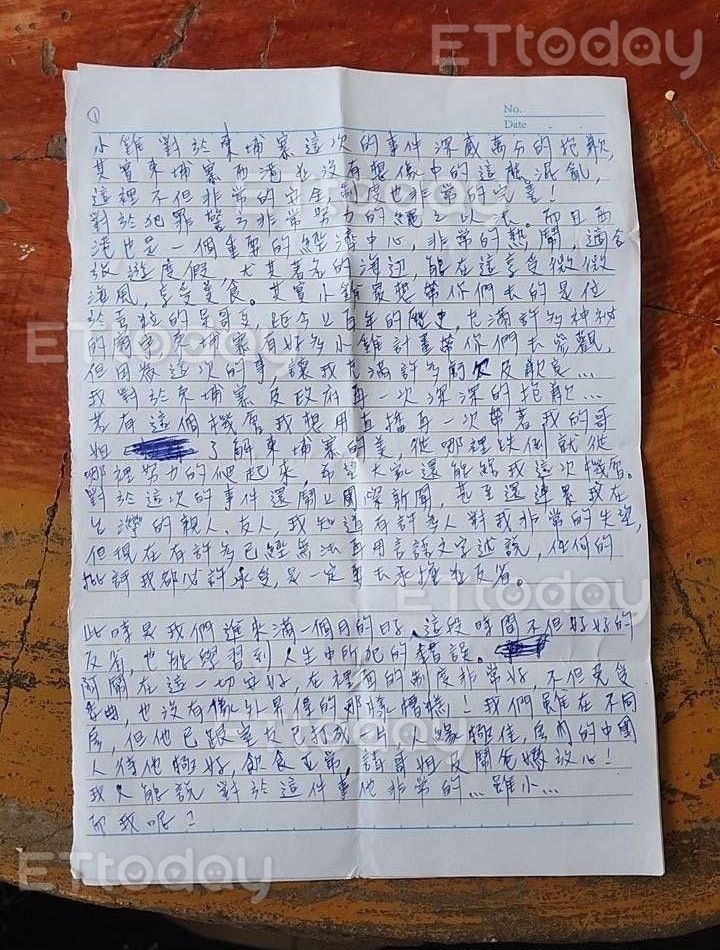 ETtoday
①
No.
Date
小錐對於柬埔寨這次的事件深感萬分的抱歉,
其實柬埔寨西港並沒有想像中的這麼混亂,
這裡不但非常的安全,制度也非常的完善!
對於犯罪警方非常努力的繩之以法。而且西
港也是一個重要的經濟中心,非常的熱鬧,適合
旅遊度假,尤其著名的海边,能在這享受微微
海風,享受美食。其實小錐最想帶你們去的是位
於暹粒的吳哥窟,距今上百年的歷史,充滿許多神秘
的 柬埔寨有好多小錐計畫帶你們去參觀,
但因為這次的事,讓我充滿許多虧欠及歉哀…
我對於柬埔寨及政府再一次深深的抱歉…
若有這個機會我想用直播再一次帶著我的哥
姐 了解柬埔寨的美,從哪裡跌倒就從
哪裡努力的爬起來,希望大家還能給我這次機會。
對於這次的事件還鬧上國際新聞,甚至還連累我在
台灣的親人、友人,我知道有許多人對我非常的失望,
但現在有許多已經無法再用言語文字述說,任何的
批評我都必許承受,是一定要去承擔並反省。
此時是我們進來滿一個月的日子、這段時間不但好好的
反省,也能學習到人生中所犯的錯誤。
阿鬧在這一切安好,在裡面的制度非常好,不但免受
委曲,也沒有像外界傳的那樣糟糕!我們雖在不同
房,但他已跟室友已打成一片,人緣極佳,房內的中國
人待他極好,飲食正常,請哥姐及鬧兔嫂放心!
我只能說 對於這件事他非常的…雖小…
而我呢?
ETtoday
ETtoday
ETtoday
ETtoday
ETtoday